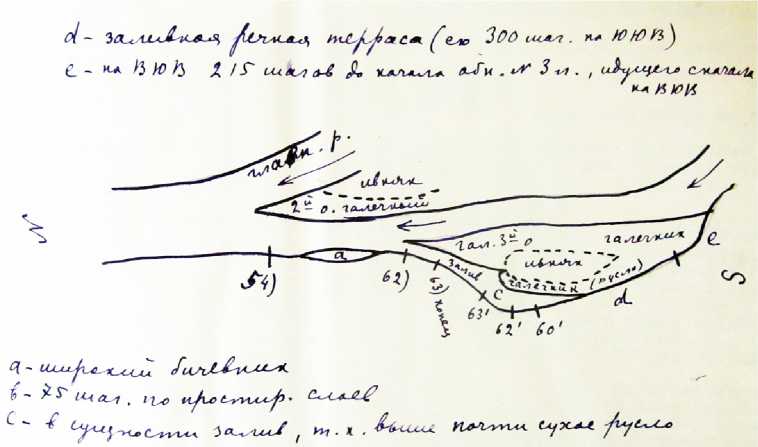 d - заливная речная терраса (ею 300 шаг. на ЮЮВ)
e - на ВЮВ 215 шагов до начала обн. N 3 л., идущего сначала
на ВЮВ
главн. р.
ивняк
2й о. галечный
гал. 3й о
галечник
ивняк
галечник (русло)
N
S
a
e
c
d
залив
54)
62)
63) конец
63'
62'
60'
a - широкий бичевник
b - 75 шаг. по простир. слоев
c - в сущности залив, т.к. выше почти сухое русло